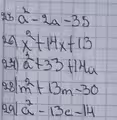 25) a² - 2a - 35
26) x² + 14x + 13
27) a² + 33 + 14a
28) m² + 13m - 30
29) c² - 13c - 14